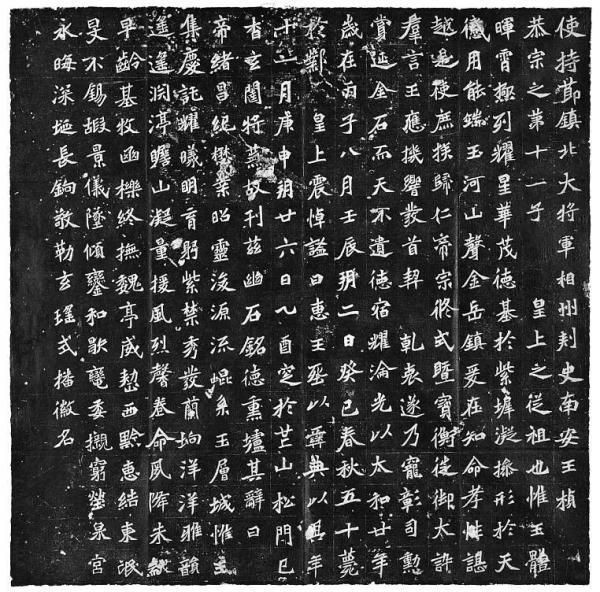 使持節鎮北大將軍相州刺史南安王楨
恭宗之第十一子 皇上之從祖也惟王體
暉霄極列耀星華茂德基於紫墀凝操形於天
儀用能端玉河山聲金岳鎮爰在知命孝性諶
越是使庶族歸仁帝宗攸式暨寶衡徙御太訊
羣言王應機響發首契 乾衷遂乃寵彰司勳
賞延金石而天不遺德宿耀淪光以太和廿年
歲在丙子八月壬辰朔二日癸巳春秋五十薨
於鄴 皇上震悼謚曰惠王葬以彝典以其年
十一月庚申朔廿六日乙酉窆於芒山松門已
杳玄闥將蕪故刊茲幽石銘德熏壚其辭曰
帝緒昌紀懋業昭靈浚源流崐系玉層城惟王
集慶託耀曦明育躬紫禁秀發蘭坰洋洋雅韻
遙遙淵渟瞻山凝量援風烈馨卷命夙降未黻
早齡基牧函櫟終撫魏亭威整西黔惠結東氓
旻不錫嘏景儀墜傾鑾和歇轡委櫬窮塋泉宮
永晦深埏長敬勒玄瑤式播徽名